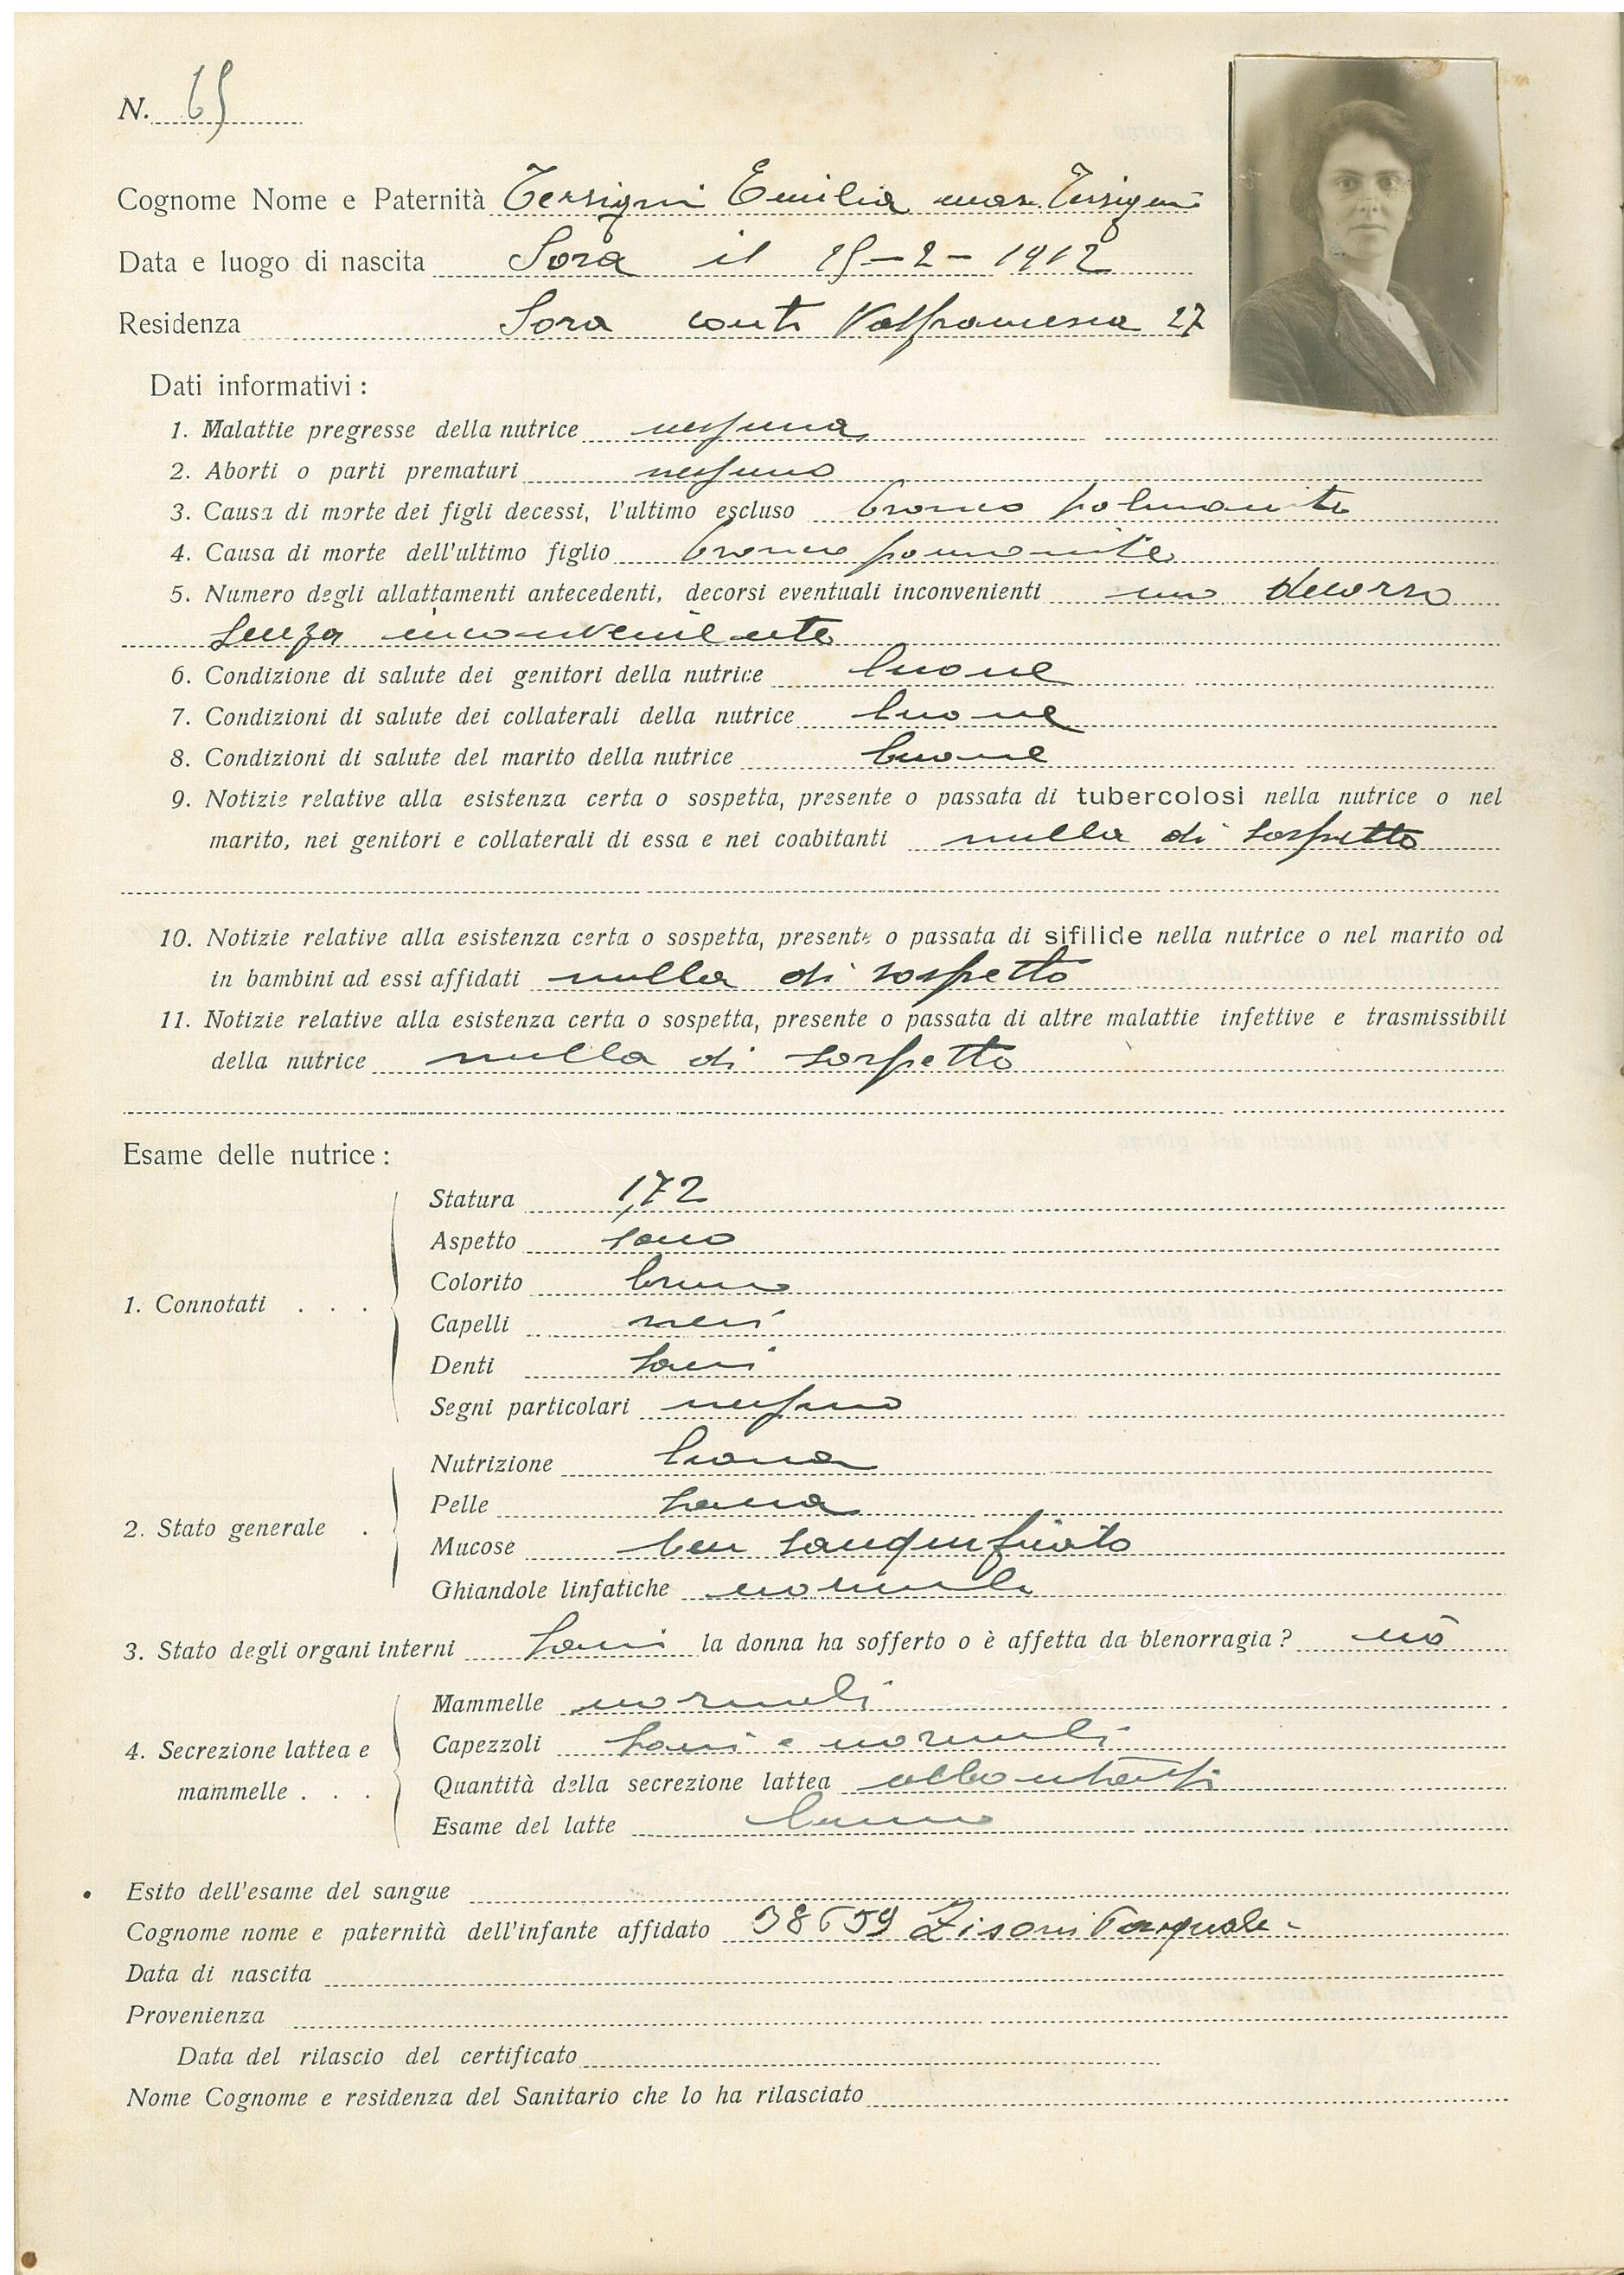 N. 65
Cognome Nome e Paternità Tersigni Emilia mar. Tersigni
Data e luogo di nascita Sora il 15-2-1912
Residenza Sora Valfrancesca 27
Dati informativi :
1. Malattie pregresse della nutrice nessuna
2. Aborti o parti prematuri nessuno
3. Causa di morte dei figli decessi, l'ultimo escluso bronco polmonite
4. Causa di morte dell'ultimo figlio
5. Numero degli allattamenti antecedenti, decorsi eventuali inconvenienti uno decorso
senza inconveniente
6. Condizione di salute dei genitori della nutrice buone
7. Condizioni di salute dei collaterali della nutrice buone
8. Condizioni di salute del marito della nutrice buone
9. Notizie relative alla esistenza certa o sospetta, presente o passata di tubercolosi nella nutrice o nel
marito, nei genitori e collaterali di essa e nei coabitanti nulla di sospetto
10. Notizie relative alla esistenza certa o sospetta, presente o passata di sifilide nella nutrice o nel marito od
in bambini ad essi affidati nulla di sospetto
11. Notizie relative alla esistenza certa o sospetta, presente o passata di altre malattie infettive e trasmissibili
della nutrice nulla di sospetto
Esame delle nutrice :
1. Connotati . . .
Statura 1,72
Aspetto sano
Colorito bruno
Capelli neri
Denti sani
Segni particolari nessuno
2. Stato generale .
Nutrizione buona
Pelle sana
Mucose ben sanguificato
Ghiandole linfatiche normali
3. Stato degli organi interni sani la donna ha sofferto o è affetta da blenorragia ? nò
4. Secrezione lattea e
mammelle . . .
Mammelle normali
Capezzoli sani e normali
Quantità della secrezione lattea
Esame del latte buono
Esito dell'esame del sangue
Cognome nome e paternità dell'infante affidato 38659 Zisoni Pasquale -
Data di nascita
Provenienza
Data del rilascio del certificato
Nome Cognome e residenza del Sanitario che lo ha rilasciato